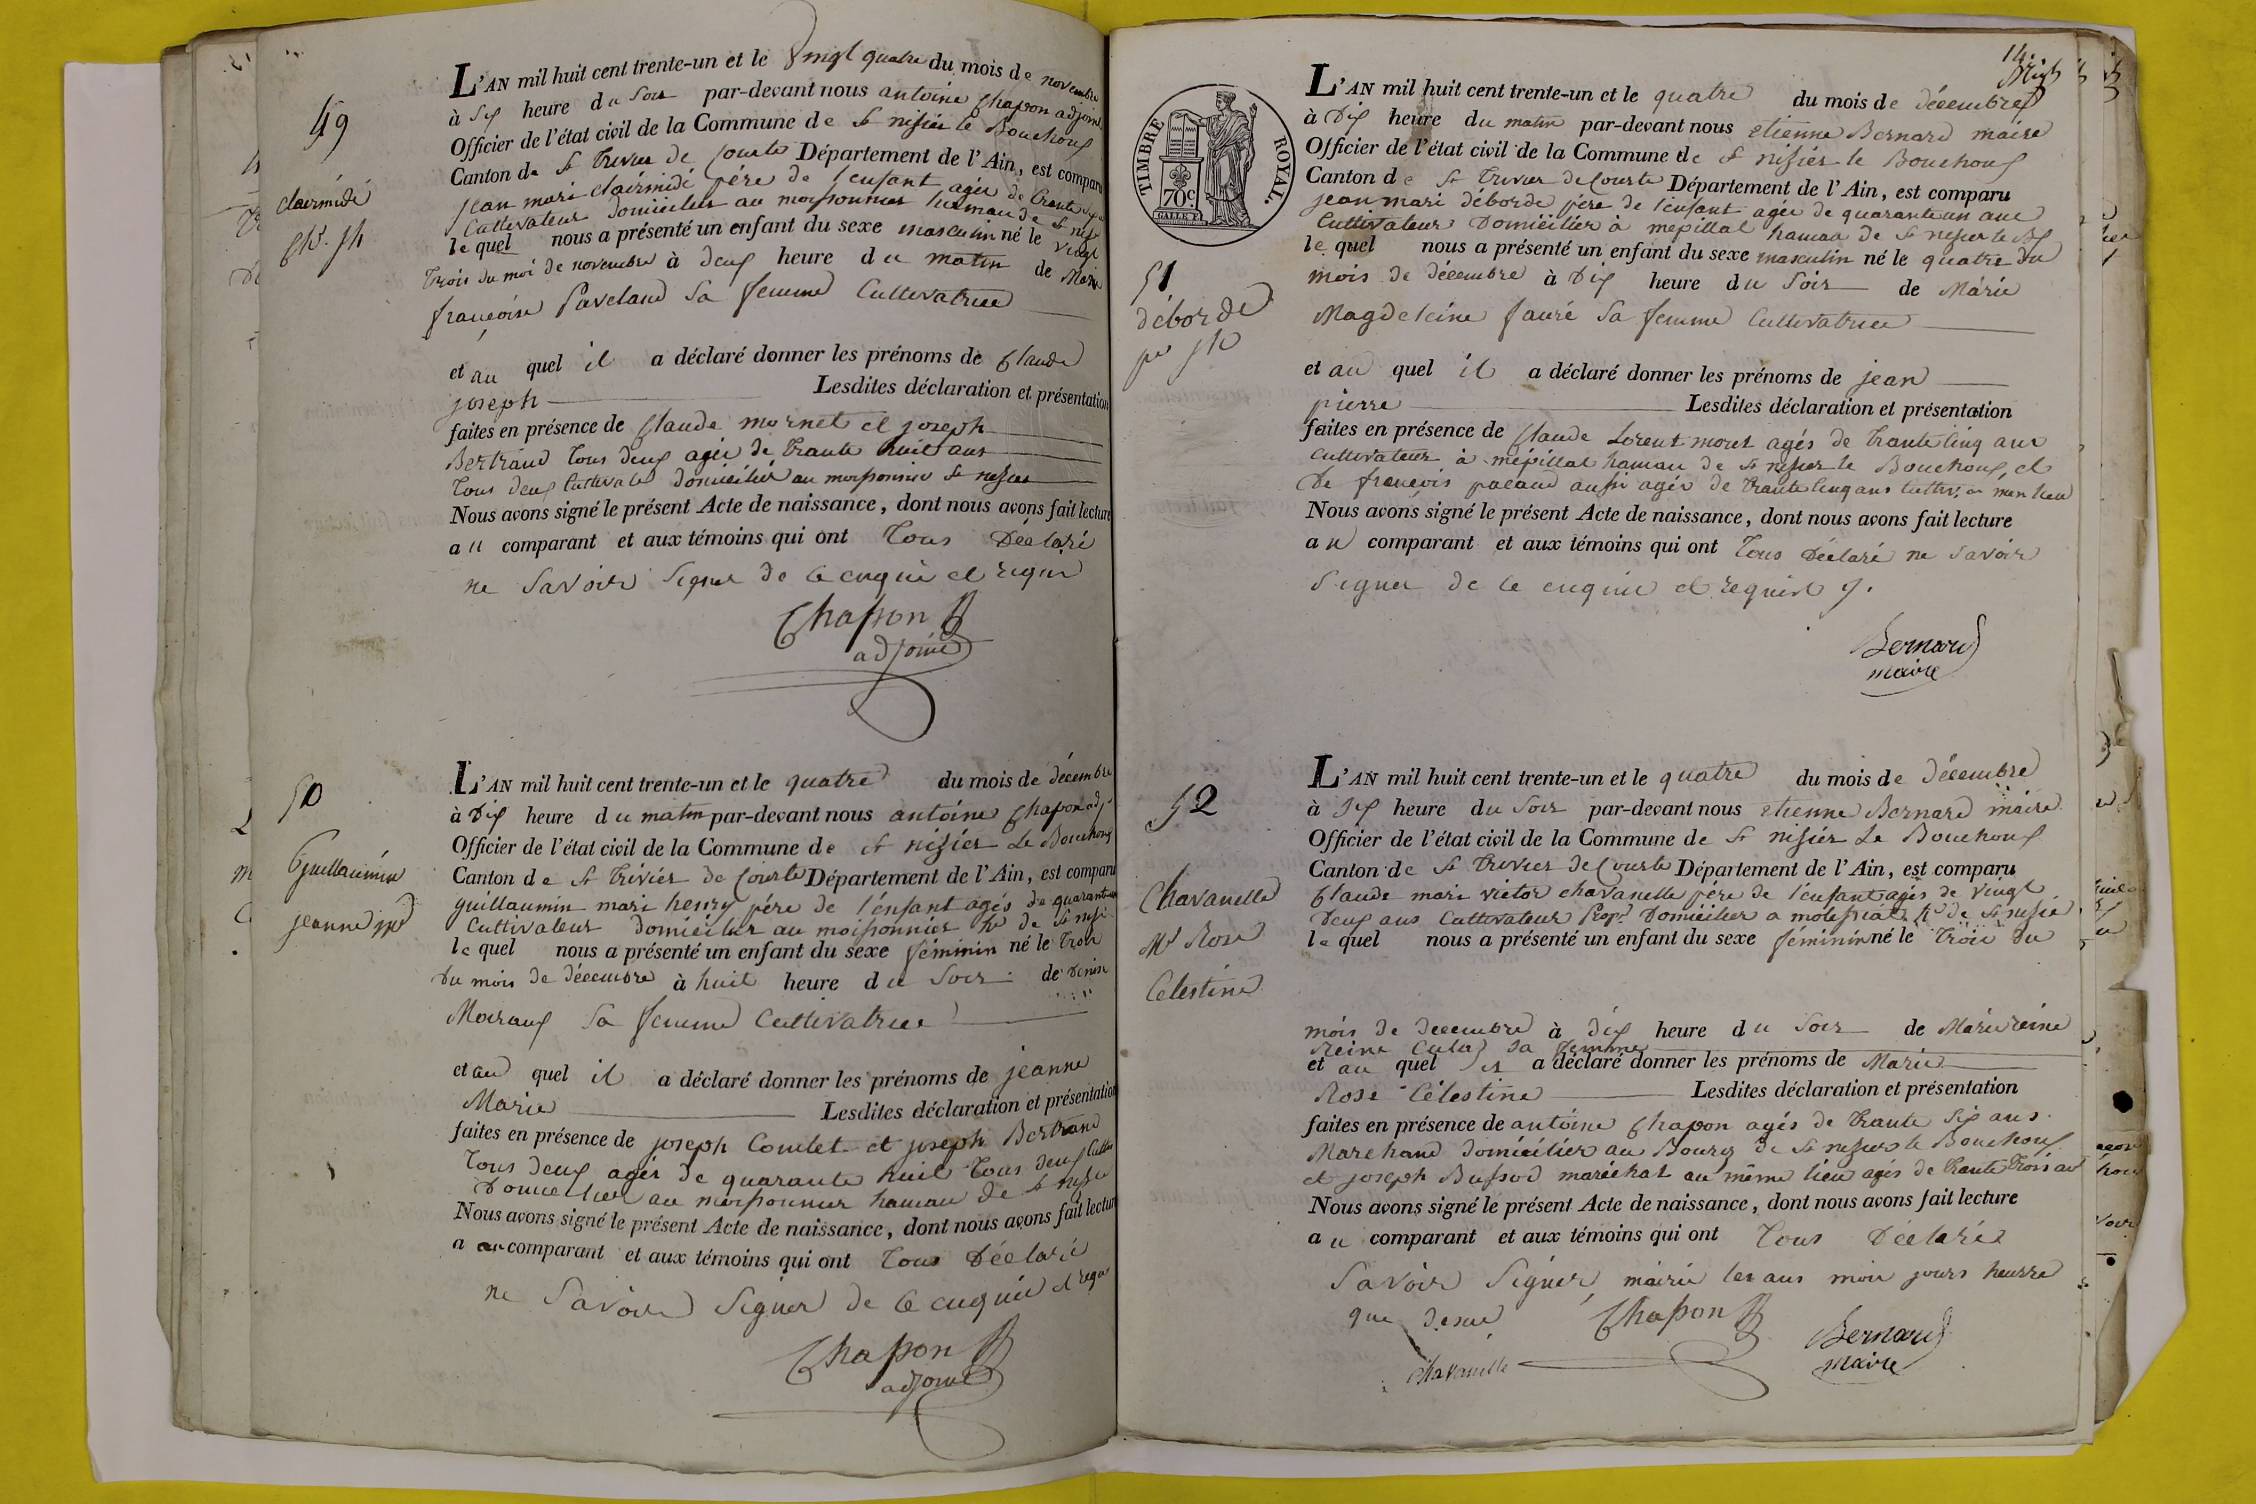 49
clairmidi
L'AN mil huit cent trente-un et le Vingt quatre du mois de novembre
à Six heure du Soir par-devant nous antoine Chapon adjoint
Officier de l'état civil de la Commune de St nisiér le Bouchoux
Canton de St Trivier de Courte Département de l'Ain, est comparu
jean mari clairmidi pére de l'enfant agée de trante
Cultivateur domicilier au moissonnier hamau de St nisi
le quel nous a présenté un enfant du sexe masculin né le vingt
trois du moi de novembre à deux heure du matin de Marie
françoise Paveland Sa femme Cultivatrice
et au quel il a déclaré donner les prénoms de Claude
joseph Lesdites déclaration et présentation
faites en présence de Claude mornet et joseph
Bertrand tous deux agée de trante huit ans
tous deux Cultivate domicilier au moissonnier St nisier
Nous avons signé le présent Acte de naissance, dont nous avons fait lecture
au comparant et aux témoins qui ont Tous Déclaré
ne Savoir Signer de ce enquie et requi
Chapon
adjoint
50
Guillaumin
jeanne
L'AN mil huit cent trente-un et le quatre du mois de décembre
à Dix heure du matin par-devant nous antoine Chapon adj
Officier de l'état civil de la Commune de St nisiér Le Bouchoux
Canton de St Triviér de Courte Département de l'Ain, est comparu
guillaumin mari henry pére de l'énfant agés de quarante
Cultivateur domicilier au moissonnier de St nisi
le quel nous a présenté un enfant du sexe féminin né le trois
du mois de décembre à huit heure du Soir de Denise
Moiraux Sa femme Cultivatrice
et au quel il a déclaré donner les prénoms de jeanne
Marie Lesdites déclaration et présentation
faites en présence de joseph Comtet et joseph Bertrand
Tous deux agér de quarante huit tous deux Cultiv
Domicilier au moissonnier hamau de St nisie
Nous avons signé le présent Acte de naissance, dont nous avons fait lecture
a au comparant et aux témoins qui ont Tous Déclaré
ne Savoir Signer de ce enquie et requi
Chapon
adjoint
14
TIMBRE ROYAL.
70c.
51
déborde
L'AN mil huit cent trente-un et le quatre du mois de décembre
à Dix heure du matin par-devant nous etienne Bernard maire
Officier de l'état civil de la Commune de St nisiér le Bouchoux
Canton de St Trivier de Courte Département de l'Ain, est comparu
jean mari déborde pére de l'enfant agée de quarante un ans
Cultivateur Domicilier à mépillat hamau de St nisier le
le quel nous a présenté un enfant du sexe masculin né le quatre du
mois de décembre à Dix heure du Soir de Marie
Magdeleine fauré Sa femme Cultivatrice
et au quel il a déclaré donner les prénoms de jean
pierre Lesdites déclaration et présentation
faites en présence de Claude Lorent moret agés de trante Cinq ans
Cultivateur à mépillat hamau de St nisier le Bouchoux, et
De françois pacaud aussi agée de trante Cinq ans Cultiv, au mem lieu
Nous avons signé le présent Acte de naissance, dont nous avons fait lecture
au comparant et aux témoins qui ont Tous Déclaré ne Savoir
Signer de ce enquie et requis
Bernard
maire
52
Chavanelle
Me Rose
Célestine
L'AN mil huit cent trente-un et le quatre du mois de Décembre
à Six heure du Soir par-devant nous etienne Bernard maire
Officier de l'état civil de la Commune de St nisiér Le Bouchoux
Canton de St Trivier de Courte Département de l'Ain, est comparu
Claude mari victor chavanelle pére de l'enfant agés de vingt
Deux ans Cultivateur Propre Domicilier a molissiat hau de St nisié
le quel nous a présenté un enfant du sexe féminin né le trois du
mois de decembre à dix heure du Soir de Marie reine
reine Culaz Sa femme
et au quel il a déclaré donner les prénoms de Marie
Rose Célestine Lesdites déclaration et présentation
faites en présence de antoine Chapon agés de trante Six ans
Marchand domicilier au Bourg de St nisier le Bouchoux
et joseph Buffod maréchal au même lieu agés de trante trois ans
Nous avons signé le présent Acte de naissance, dont nous avons fait lecture
au comparant et aux témoins qui ont Tous Déclarés
Savoir Signer, mairie les ans moi jours heurre
que desue Chapon Bernard
chavanelle maire